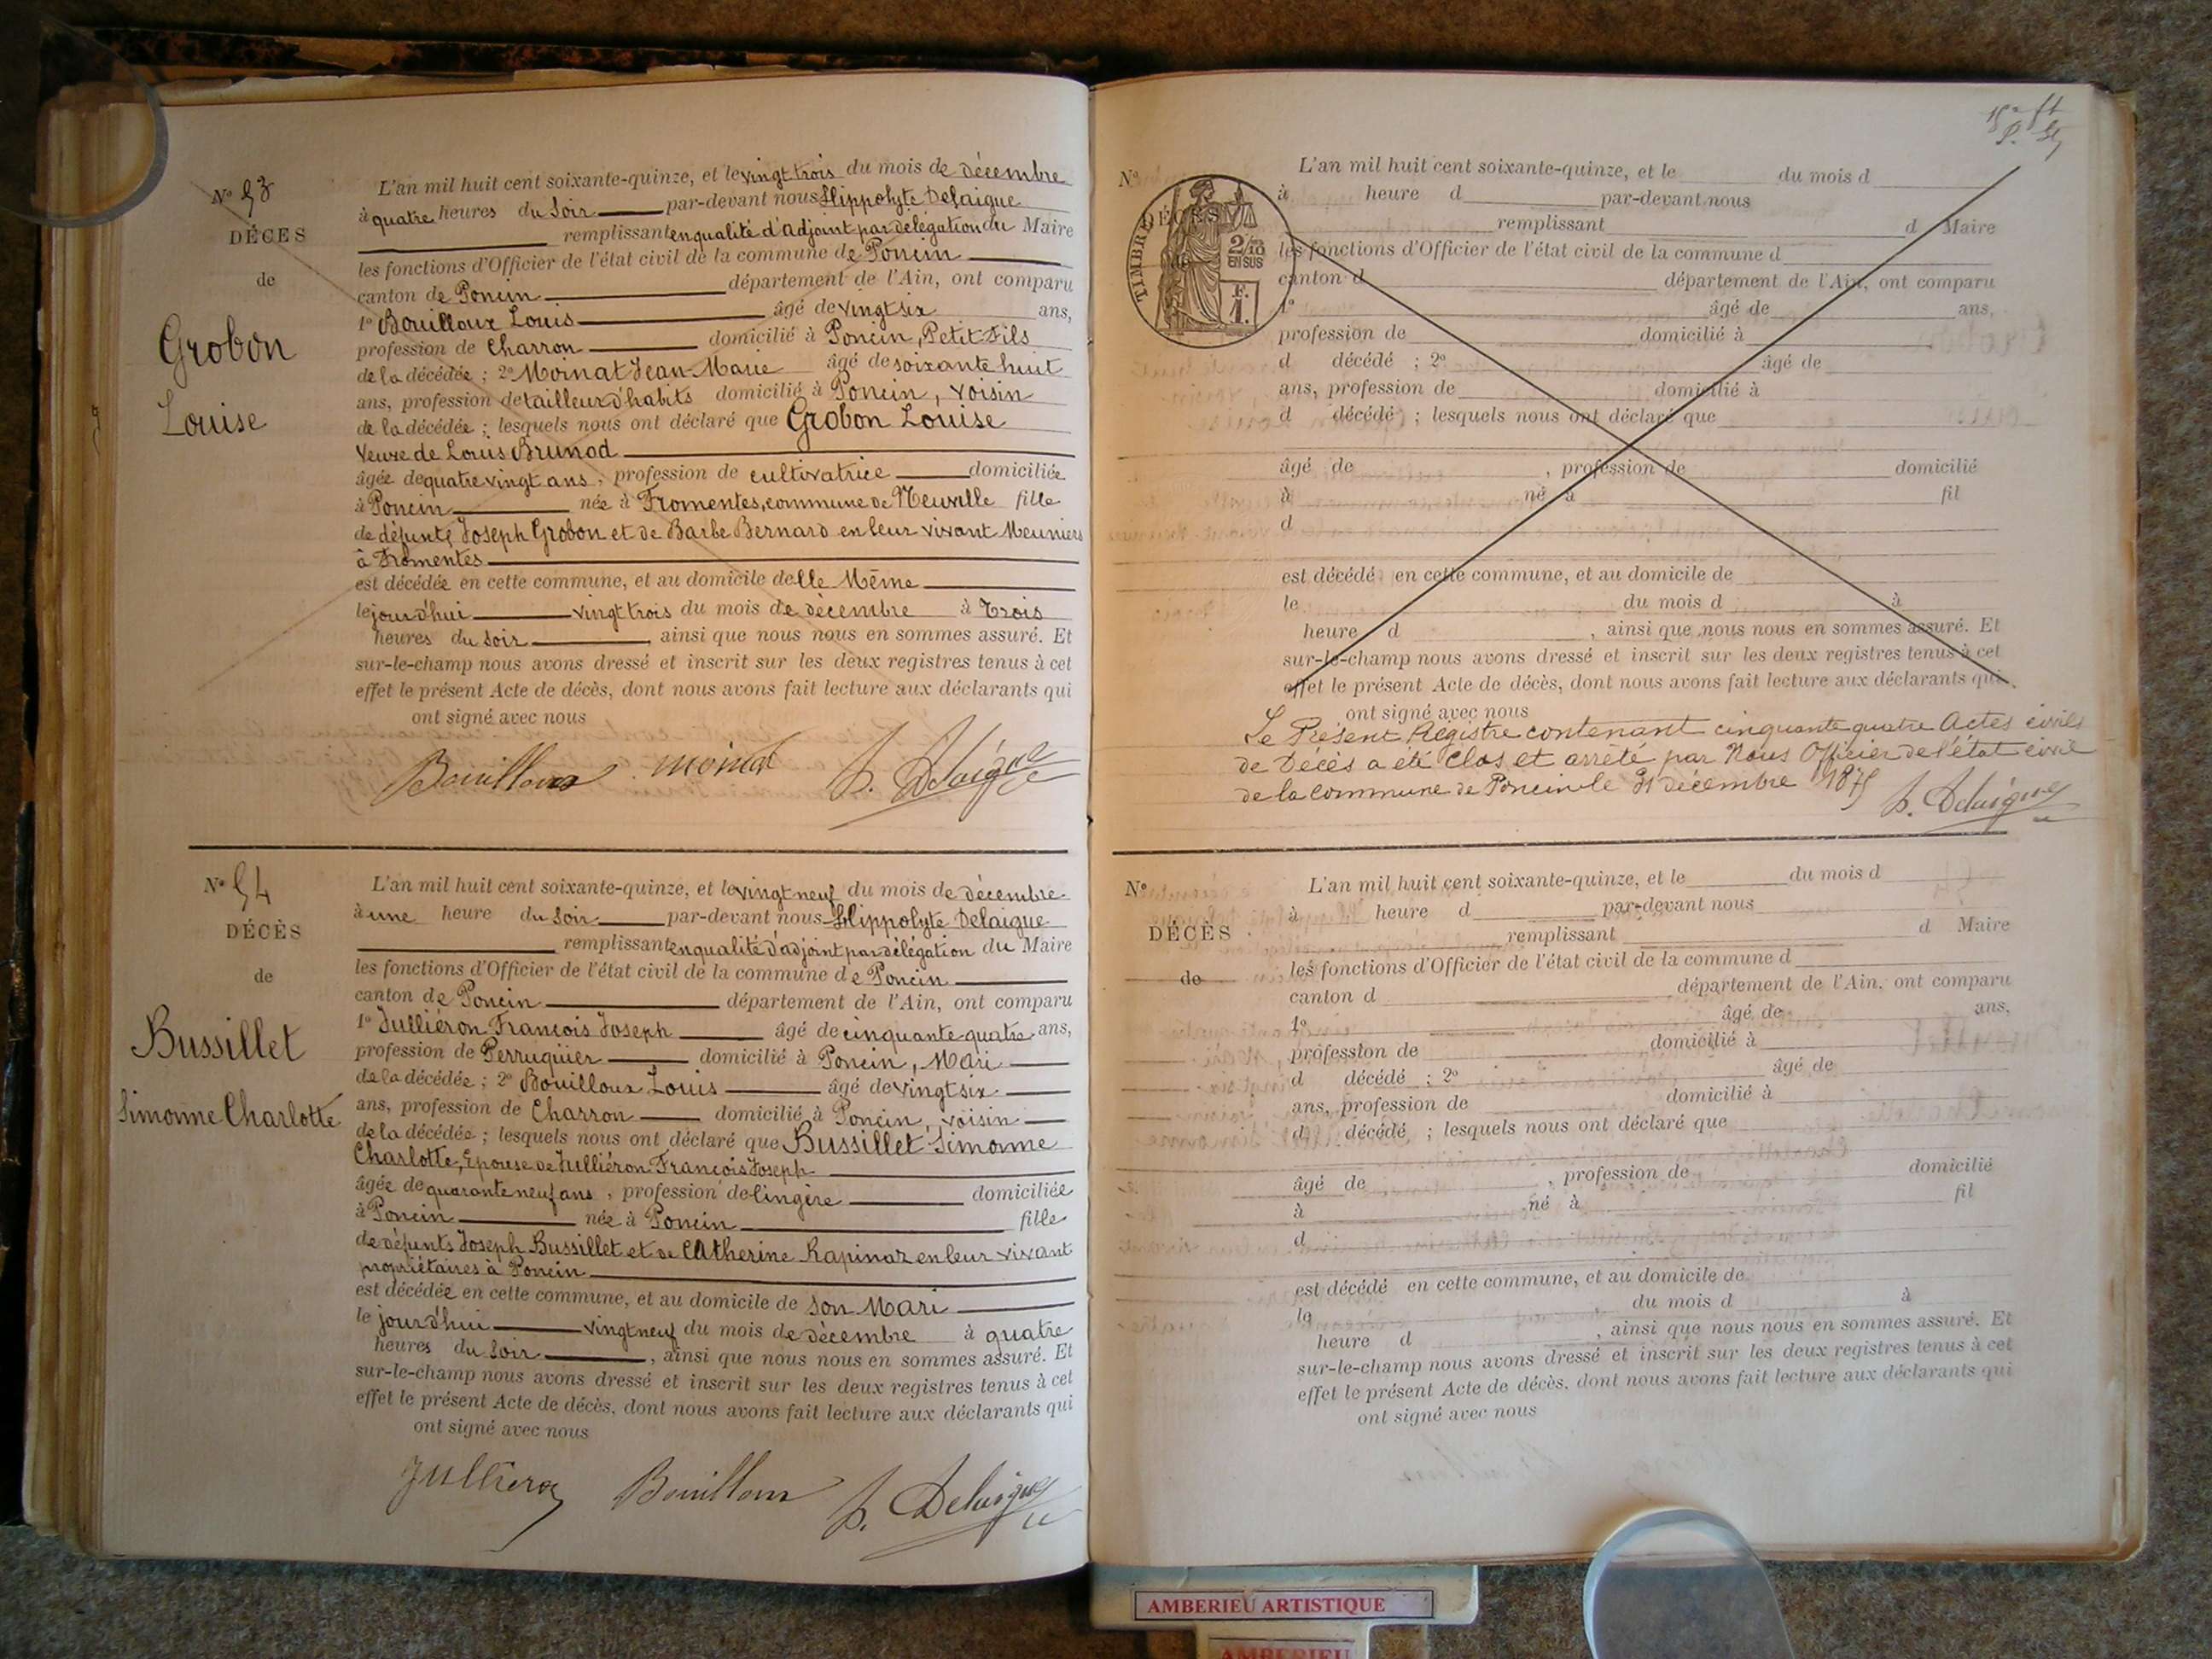 N° 53
DÉCÈS
de
Grobon
Louise
L'an mil huit cent soixante-quinze, et le vingt trois du mois de décembre
à quatre heures du Soir par-devant nous Hippolyte Delaigue
remplissant en qualité d'adjoint par délégation du Maire
les fonctions d'Officier de l'état civil de la commune de Poncin
canton de Poncin département de l'Ain, ont comparu
1° Bouilloux Louis âgé de vingt six ans,
profession de Charron domicilié à Poncin, Petit Fils
de la décédée ; 2° Moinat Jean-Marie âgé de soixante huit
ans, profession de tailleur d'habits domicilié à Poncin, voisin
de la décédée ; lesquels nous ont déclaré que Grobon Louise
Veuve de Louis Brunod
âgée de quatre vingt ans, profession de cultivatrice domiciliée
à Poncin née à Fromentes, commune de Neuville fille
de défunts Joseph Grobon et de Barbe Bernard en leur vivant Meuniers
à Fromentes
est décédée en cette commune, et au domicile de lle Même
le jourd'hui vingt trois du mois de décembre à Trois
heures du Soir ainsi que nous nous en sommes assuré. Et
sur-le-champ nous avons dressé et inscrit sur les deux registres tenus à cet
effet le présent Acte de décès, dont nous avons fait lecture aux déclarants qui
ont signé avec nous
Bouilloux moinat h. Delaigue
N° 54
DÉCÈS
de
Bussillet
Simonne Charlotte
L'an mil huit cent soixante-quinze, et le vingt neuf du mois de décembre
à une heure du Soir par-devant nous Hippolyte Delaigue
remplissant en qualité d'adjoint par délégation du Maire
les fonctions d'Officier de l'état civil de la commune de Poncin
canton de Poncin département de l'Ain, ont comparu
1° Julliéron François Joseph âgé de cinquante quatre ans,
profession de Perruquier domicilié à Poncin, Mari
de la décédée ; 2° Bouilloux Louis âgé de vingt six
ans, profession de Charron domicilié à Poncin, voisin
de la décédée ; lesquels nous ont déclaré que Bussillet Simonne
Charlotte, Epouse de Julliéron François Joseph
âgée de quarante neuf ans, profession de lingère domiciliée
à Poncin née à Poncin fille
de défunts Joseph Bussillet et de Catherine Rapinaz en leur vivant
propriétaires à Poncin
est décédée en cette commune, et au domicile de son Mari
le jourd'hui vingt neuf du mois de décembre à quatre
heures du Soir, ainsi que nous nous en sommes assuré. Et
sur-le-champ nous avons dressé et inscrit sur les deux registres tenus à cet
effet le présent Acte de décès, dont nous avons fait lecture aux déclarants qui
ont signé avec nous
Jullieron Bouilloux h. Delaigue
N°
DÉCÈS
TIMBRE
2/10
EN SUS
F.
1.
L'an mil huit cent soixante-quinze, et le du mois d
à heure d par-devant nous
remplissant d Maire
les fonctions d'Officier de l'état civil de la commune d
canton d département de l'Ain, ont comparu
1° âgé de ans,
profession de domicilié à
d décédé ; 2° âgé de
ans, profession de domicilié à
d décédé ; lesquels nous ont déclaré que
âgé de , profession de domicilié
à né à fil
d
est décédé en cette commune, et au domicile de
le du mois d à
heure d , ainsi que nous nous en sommes assuré. Et
sur-le-champ nous avons dressé et inscrit sur les deux registres tenus à cet
effet le présent Acte de décès, dont nous avons fait lecture aux déclarants qui
ont signé avec nous
Le Présent Régistre contenant cinquante quatre Actes civils
de Décès a été Clos et arrêté par Nous Officier de l'état civil
de la commune de Poncin le 31 décembre 1875
h. Delaigue
N°
DÉCÈS
de
L'an mil huit cent soixante-quinze, et le du mois d
à heure d par-devant nous
remplissant d Maire
les fonctions d'Officier de l'état civil de la commune d
canton d département de l'Ain, ont comparu
1° âgé de ans,
profession de domicilié à
d décédé ; 2° âgé de
ans, profession de domicilié à
d décédé ; lesquels nous ont déclaré que
âgé de , profession de domicilié
à né à fil
d
est décédé en cette commune, et au domicile de
le du mois d à
heure d , ainsi que nous nous en sommes assuré. Et
sur-le-champ nous avons dressé et inscrit sur les deux registres tenus à cet
effet le présent Acte de décès, dont nous avons fait lecture aux déclarants qui
ont signé avec nous
AMBERIEU ARTISTIQUE
AMBERIEU